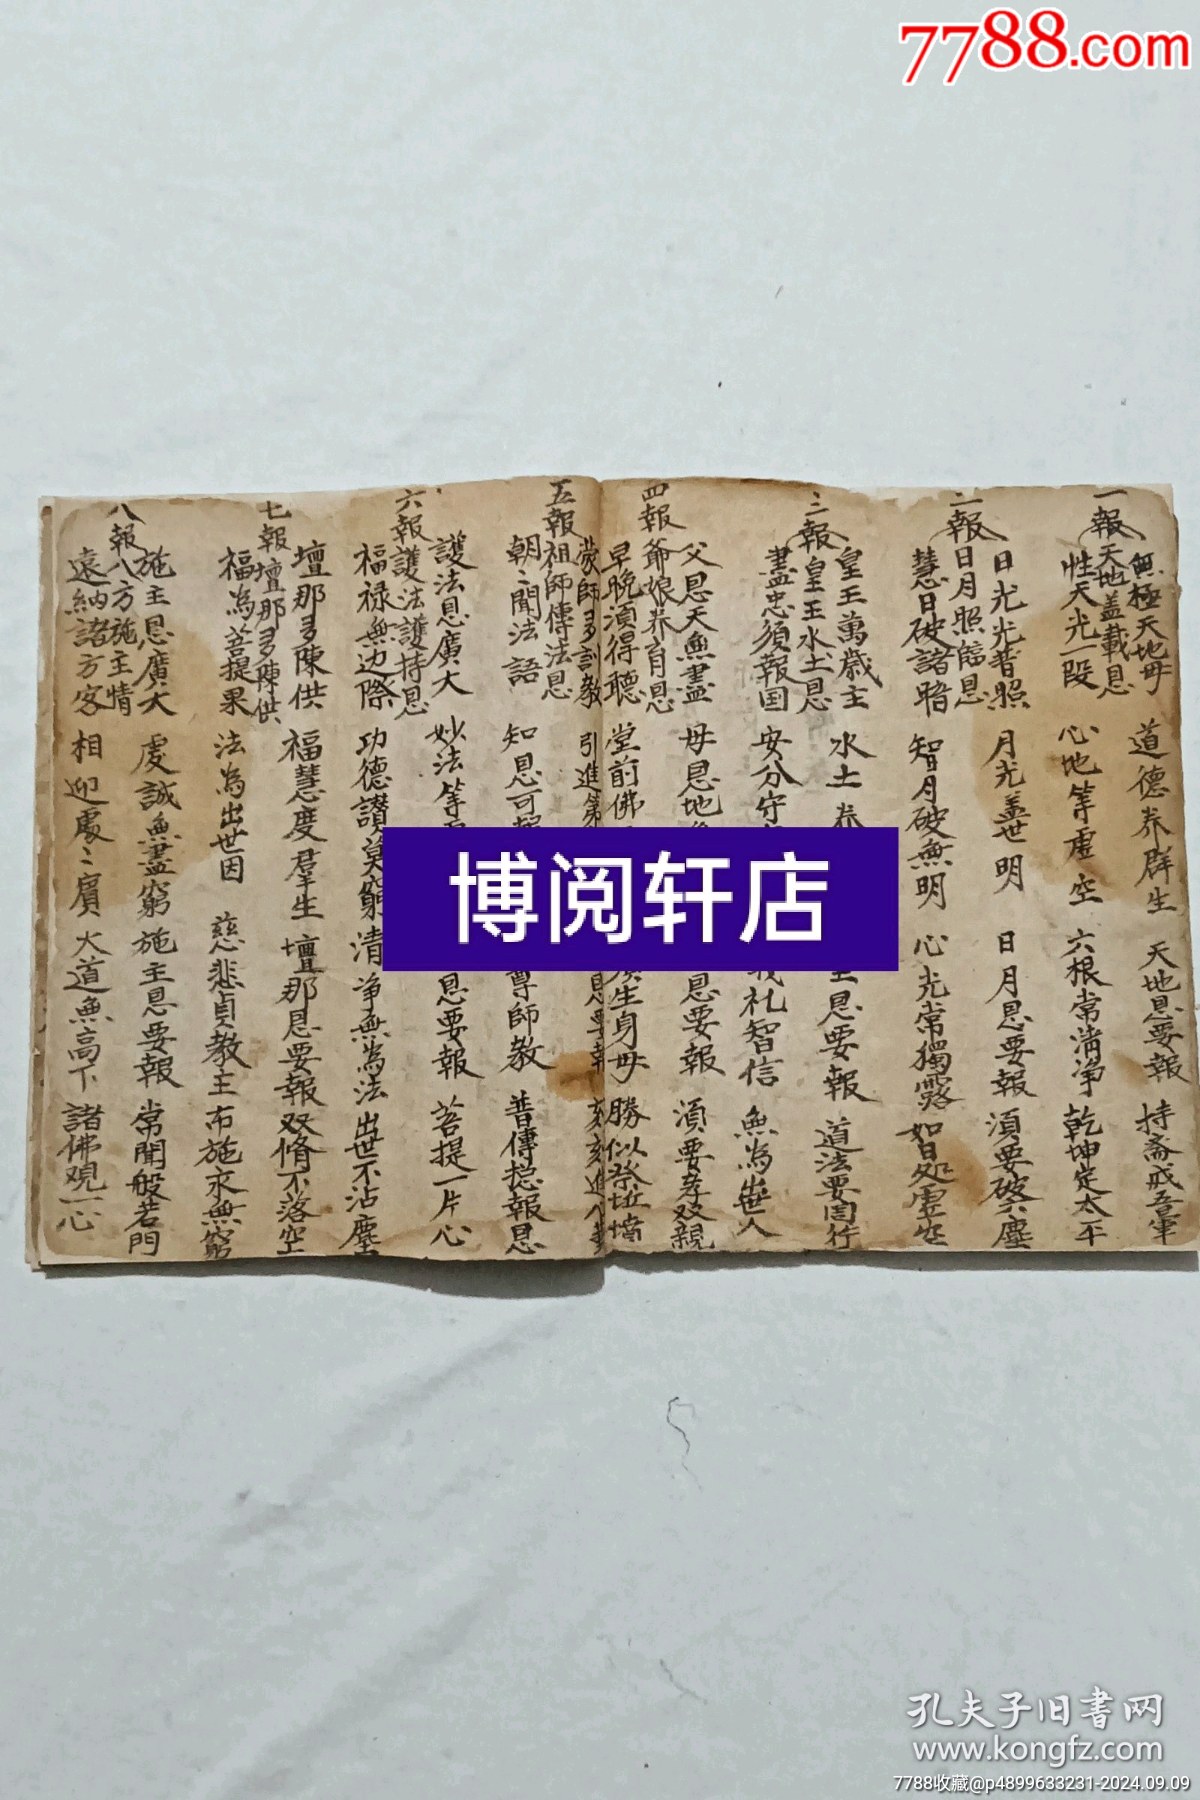 7788.com
一報天地盖載恩
無極天地母 道德养群生 天地恩要報 持齋戒吾軍
性天光一段 心地等虚空 六根常清净 乾坤定太平
二報日月照臨恩
日光光普照 月光盖世明 日月恩要報 須要破六塵
慧日破諸暗 智月破無明 心光常獨露 如日处虚空
三報皇王水土恩
皇王萬歲主 水土养 王恩要報 道法要周行
盡忠須報国 安分守 礼智信 無為出世人
四報爺娘养育恩
父恩天無盡 母恩地 恩要報 須要孝双親
早晚須得聽 堂前佛 生身母 勝似祭坵墳
五報祖師傳法恩
蒙師多訓教 引進 恩要報 刻刻進
朝〻聞法語 知恩可報 尊師教 普傳揔報恩
六報護法護持恩
護法恩廣大 妙法等 恩要報 菩提一片心
福禄無边際 功德讃莫窮 清净無為法 出世不沾塵
七報壇那多陳供
壇那多陳供 福慧度羣生 壇那恩要報 双脩不落空
福為菩提果 法為出世因 慈悲貞教主 布施永無窮
八報八方施主情
施主恩廣大 虔誠無盡窮 施主恩要報 常開般若門
遠納諸方客 相迎處〻賓 大道無高下 諸佛观一心
博阅轩店
孔夫子旧书网
www.kongfz.com
7788收藏@p4899633231-2024.09.09